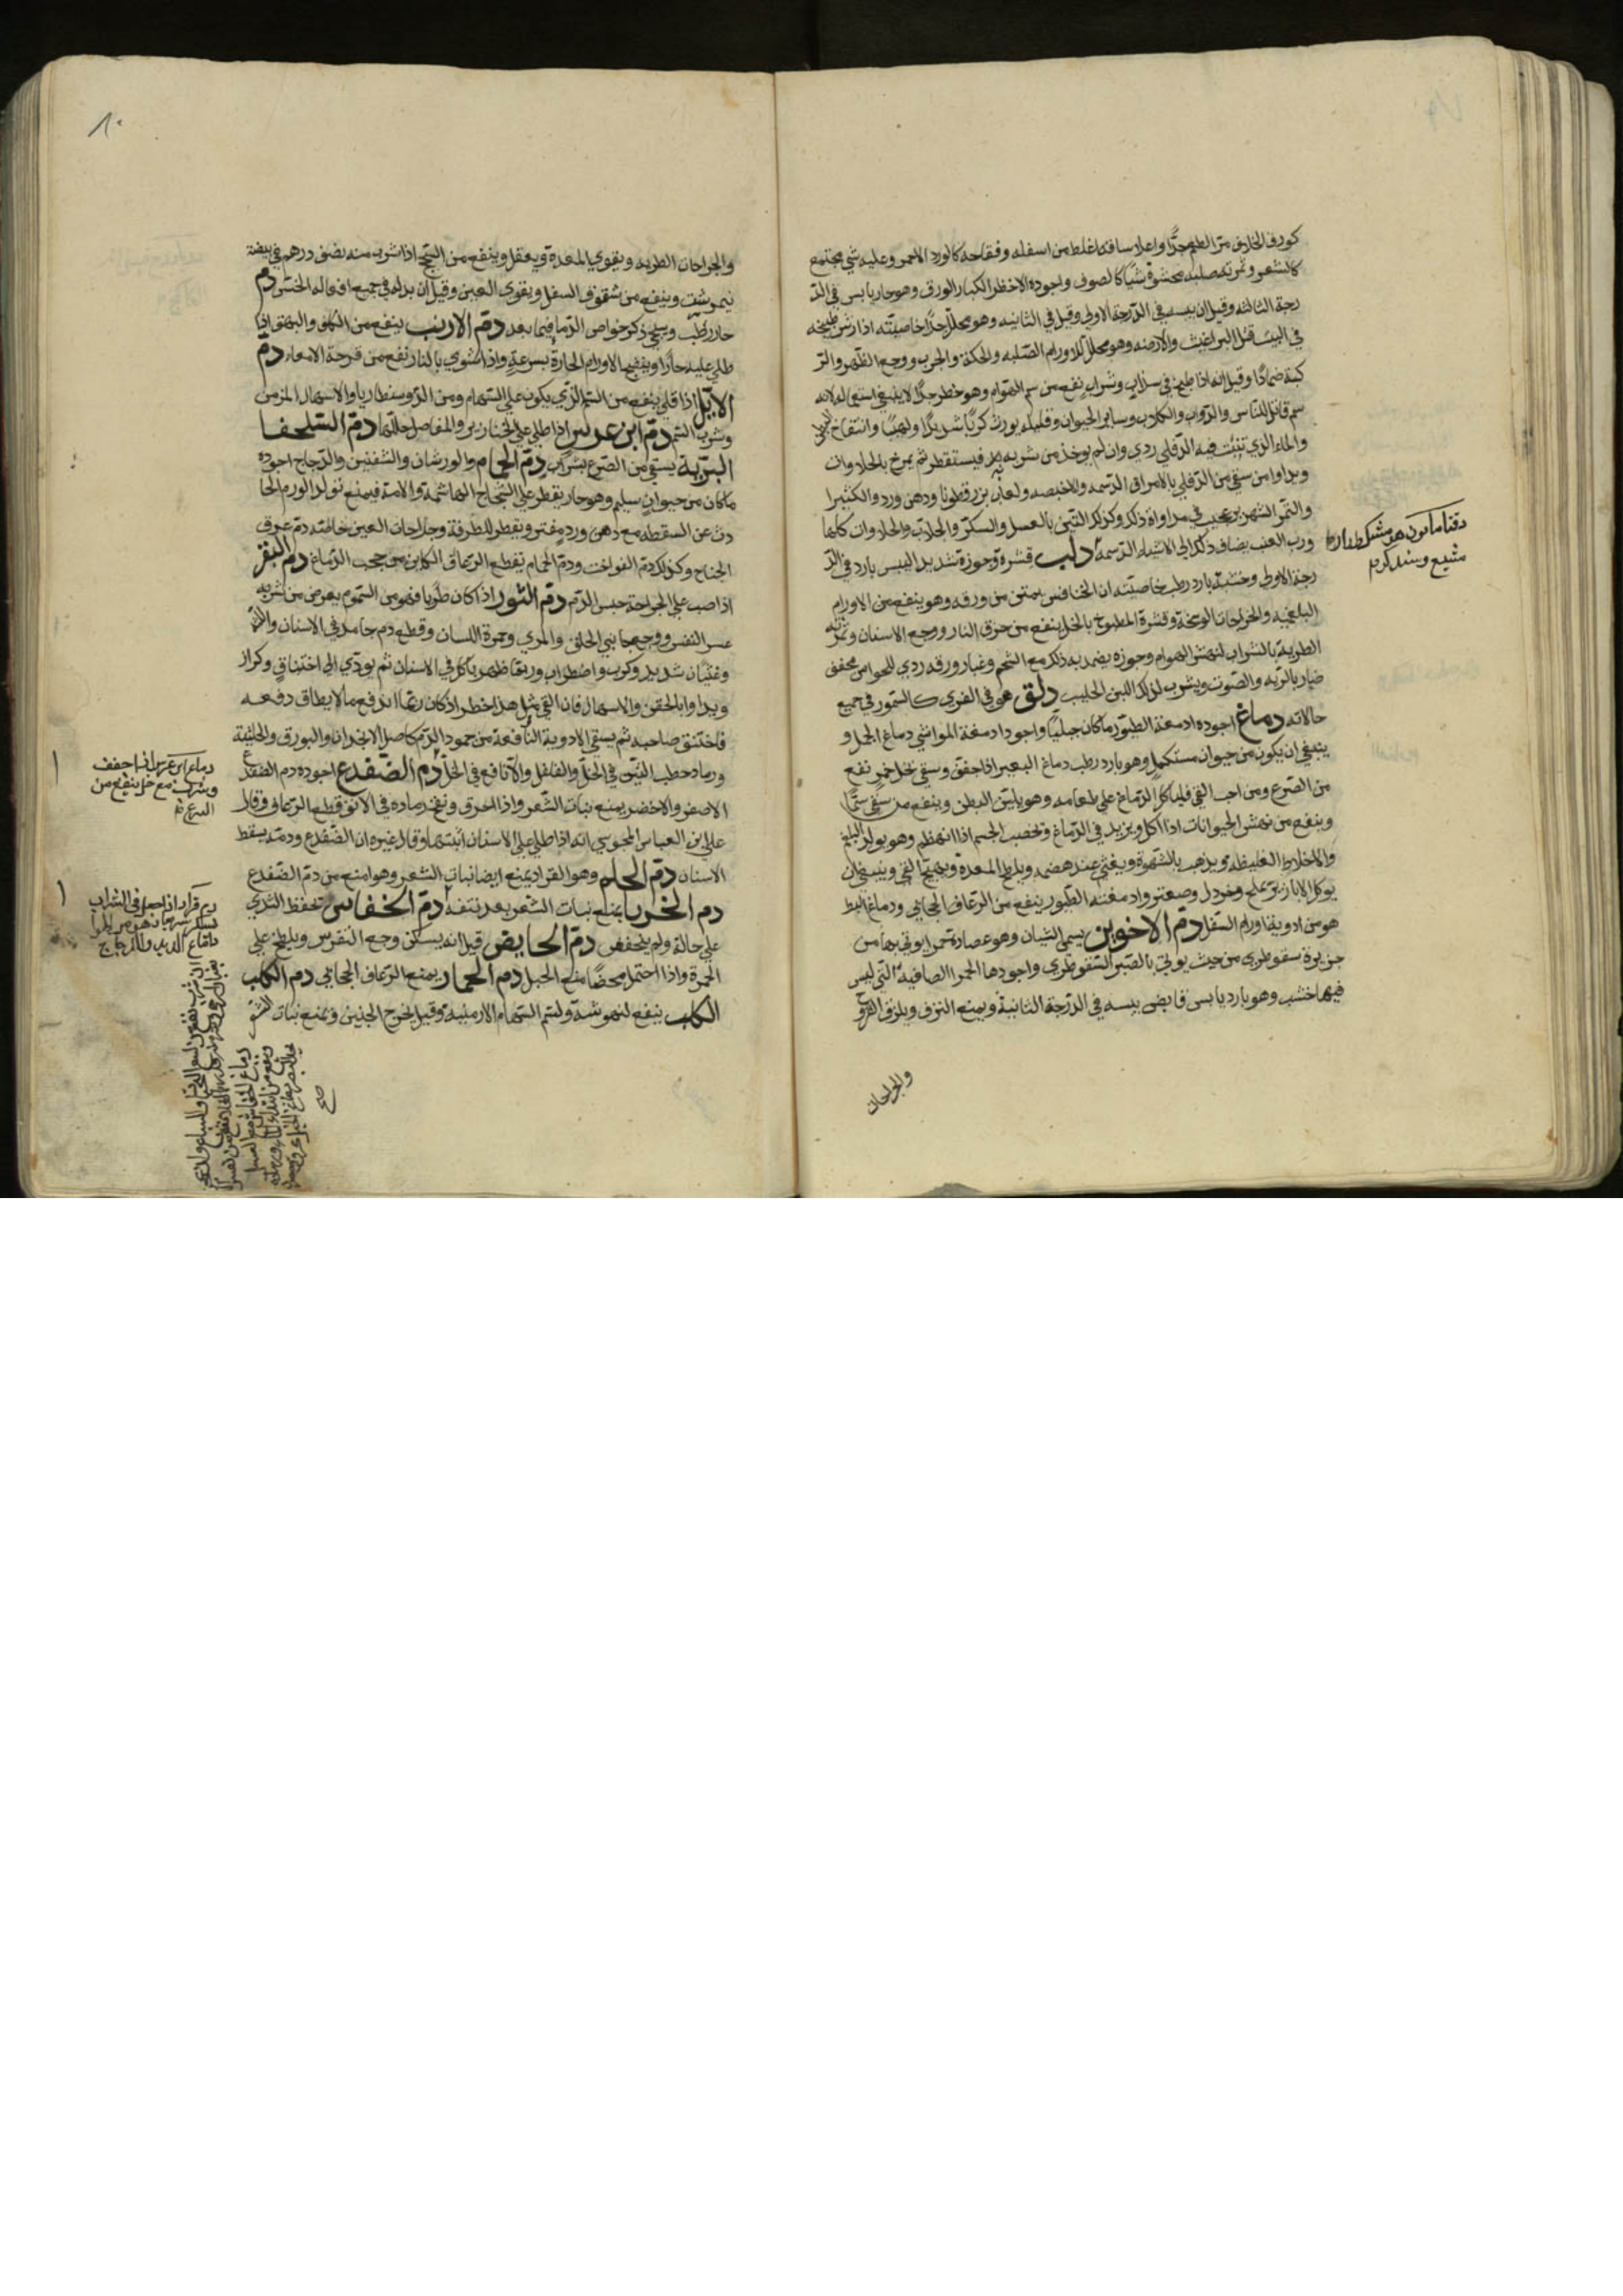 كورق الخلاف مر الطعم جدًّا واعلا ساقه اغلظ من اسفله وفقاحه كالورد الاحمر وعليه شي مجتمع
كالشعر وثمرته صلبه محشوة شيًا كالصوف واجوده الاخضر الكبار الورق وهو حار يابس في الد
رجة الثالثه وقيل ان يبسه في الدّرجة الاولي وقيل في الثانيه وهو محلل جدًّا خاصيّته اذا رش طبيخه
في البيت قتل البراغيث والارضه وهو محلل للاورام الصّلبه والحكة والجرب ووجع الظهر والر
كبة ضمادًا وقيل انه اذا طبخ في سذاب وشراب نفع من سم الهوام وهو خطر جدًّا لا ينبغي استعماله لانه
سم قاتل للناس والدّواب والكلاب وساير الحيوان وقليله يورث كربًا شديدًا ولهيبًا وانتفاخ البطن
والماء الذي تنبت فيه الدّفلي ردي وان لم يوخذ من شربه بد فيستقطر ثم يمزج بالحلاوات
ويداوا من سقي من الدّفلي بالامراق الدّسمه والاخبصه ولعاب بزرقطونا ودهن ورد والكثيرا
والتمر الشهريز عجيب في مداواة ذلك وكذلك التين بالعسل والسكّر والجلاب والحلاوات كلها
ورب العنب يضاف ذلك الي الاشياء الدّسمة دلب قشره وجوزه شديد اليبس بارد في الد
رجة الاولي وخشبه بارد رطب خاصيّته ان الخنافس يمتن من ورقه وهو ينفع من الاورام
البلغميه والجراحات الوسخة وقشرة المطبوخ بالخل ينفع من حرق النار ووجع الاسنان وثمرته
الطرية بالشراب لنهش الهوام وجوزه يضمد به ذلك مع الشحم وغبار ورقه ردي للحواس مجفف
ضار بالريه والصّوت ويشرب لذلك اللبن الحليب دلق هو في الفري كالسّمور في جميع
حالاته دماغ اجوده ادمغة الطيور ما كان جبليًا واجود ادمغة المواشي دماغ الجمل و
ينبغي ان يكون من حيوان مستكمل وهو بارد رطب دماغ البعير اذا جفف وسقي بخل خمر نفع
من الصّرع ومن احب القي فلياكل الدّماغ علي طعامه وهو يليّن البطن وينفع من سقي سمًّا
وينفع من نهش الحيوانات اذا اكل ويزيد في الدّماغ وتخصب الجسم اذا انهظم وهو يولد البلغم
والاخلاط الغليظه ويذهب بالشهوة ويغثي عند هضمه ويلطخ المعدة ويهيج القي وينبغي ان
يوكل الابازير بملح وخردل وصعتر وادمغة الطيور ينفع من الرّعاف الحجابي ودماغ البط
هو من ادوية اورام السفل دم الاخوين يسمي الشيان وهو عصارة حمرا يوتي بها من
جزيرة سقوطري من حيث يوتي بالصّبر السّقوطري واجودها الحمرا الصافية التي ليس
فيها خشب وهو بارد يابس قابض يبسه في الدّرجة الثانية ويمنع النزف ويلزق القروح
والجراحات
مشبع وسندكرم
والجراحات الطريه ويقوي المعدة ويعقل وينفع من السّحج اذا شرب منه نصف درهم في بيضة
نيمرشت وينفع من شقوق السفل ويقوي العين وقيل ان بدله في جميع افعاله الخس دم
حار رطب وسيجي ذكر خواص الدّما فيما بعد دم الارنب ينفع من الكلف والبهق اذا
طلي عليه حارًّا وينضج الاورام الحارة بسرعة واذا شوي بالنار نفع من قرحة الامعاء دم
الايّل اذا قلي ينفع من السم الذي يكون علي السّهام ومن الدّوسنطاريا والاسهال المزمن
وشرب السّم دم ابن عرس اذا طلي علي الخنازير والمفاصل حللها دم السّلحفا
البرّية يسقي من الصّرع بشراب دم الحمام والورشان والشفنين والدّجاج اجوده
ما كان من حيوان سليم وهو حار يقطر علي الشجاج الهاشمة والامة فيمنع تولد الورم الحا
دث عن السقطه مع دهن ورد مفتر ويقطر للطرفة وجراحات العين خاصّه دم عرق
الجناح وكذلك دم الفواخت ودم الحمام يقطع الرّعاف الكاين من حجب الدّماغ دم البقر
اذا صب علي الجراحة حبس الدّم دم الثور اذا كان طريا فهو من السّموم يعرض من شربه
عسر النفس ووجع جانبي الحلق والمري وحمرة اللسان وقطع دم جامد في الاسنان واللثة
وغثيان شديد وكرب واضطراب وربّما ظهر تاكل في الاسنان ثم يودّي الي اختناق وكزاز
ويداوا بالحقن والاسهال فان القي مثل هذا خطر اذ كان ربّما اندفع ما لا يطاق دفعه
فاختنق صاحبه ثم يسقي الادوية النافعة من جمود الدّم كاصل الانجدان والبورق والحلتيت
ورماد حطب التين في الخل والفلفل والانافع في الخل دم الضّفدع اجوده دم الضفدع
الاصفر والاخضر يمنع نبات الشّعر واذا احرق ونفخ رماده في الانف قطع الرّعاف وقال
علي بن العباس المجوسي انه اذا طلي علي الاسنان انبتها وقال غيره ان الضّفدع ودمه يسقط
الاسنان دم الحلم وهو القراد يمنع ايضا نبات الشّعر وهو امنع من دم الضّفدع
دم الخربا يمنع نبات الشّعر بعد نتفه دم الخفاش تحفظ الثدي
علي حاله ولم ينخفض دم الحايض قيل انه يسكن وجع النقرس ويلطخ علي
الحمرة واذا احتمل محضًا منع الحبل دم الحمار يمنع الرّعاف الحجابي دم الكلب
الكلب ينفع لنهوشه ولسم السّهام الارمنيه وقيل يخرج الجنين ويمنع نبات الشعر
دماغ ابن عرس اذا جفف
وشرب مع خل ينفع من
الصرع
دم قراد اذا جعل في الشراب
صح
٨٠
٧٩